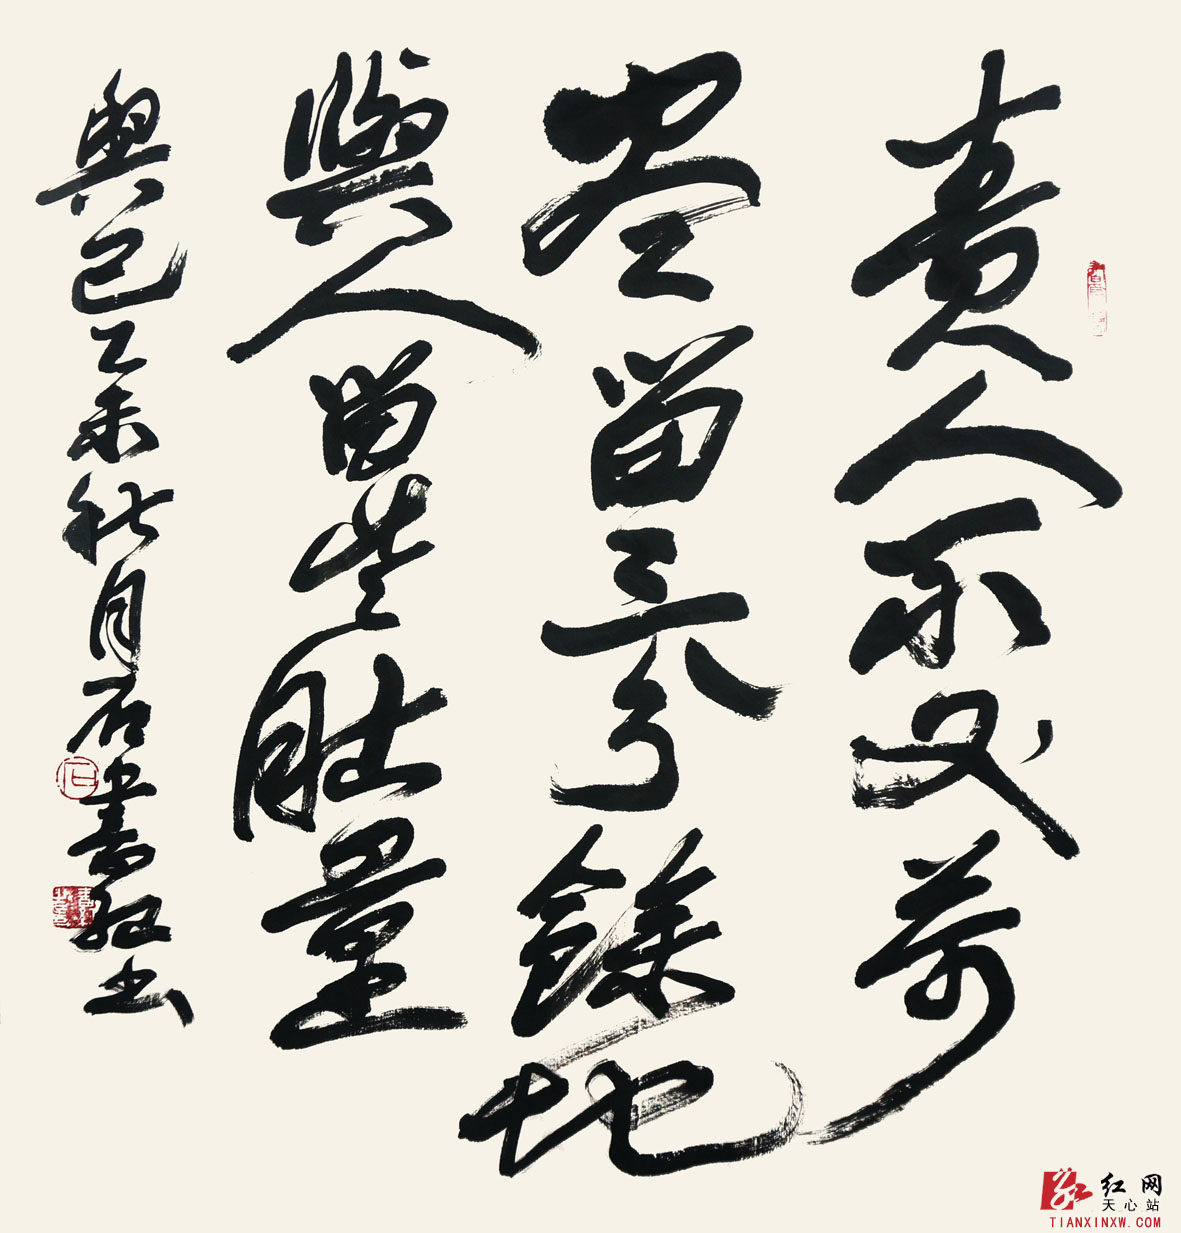 責人不必苛
盡留三分餘地
與人留些肚量
與己乙未秋月石書紅书
红网
天心站
TIANXINXW.COM